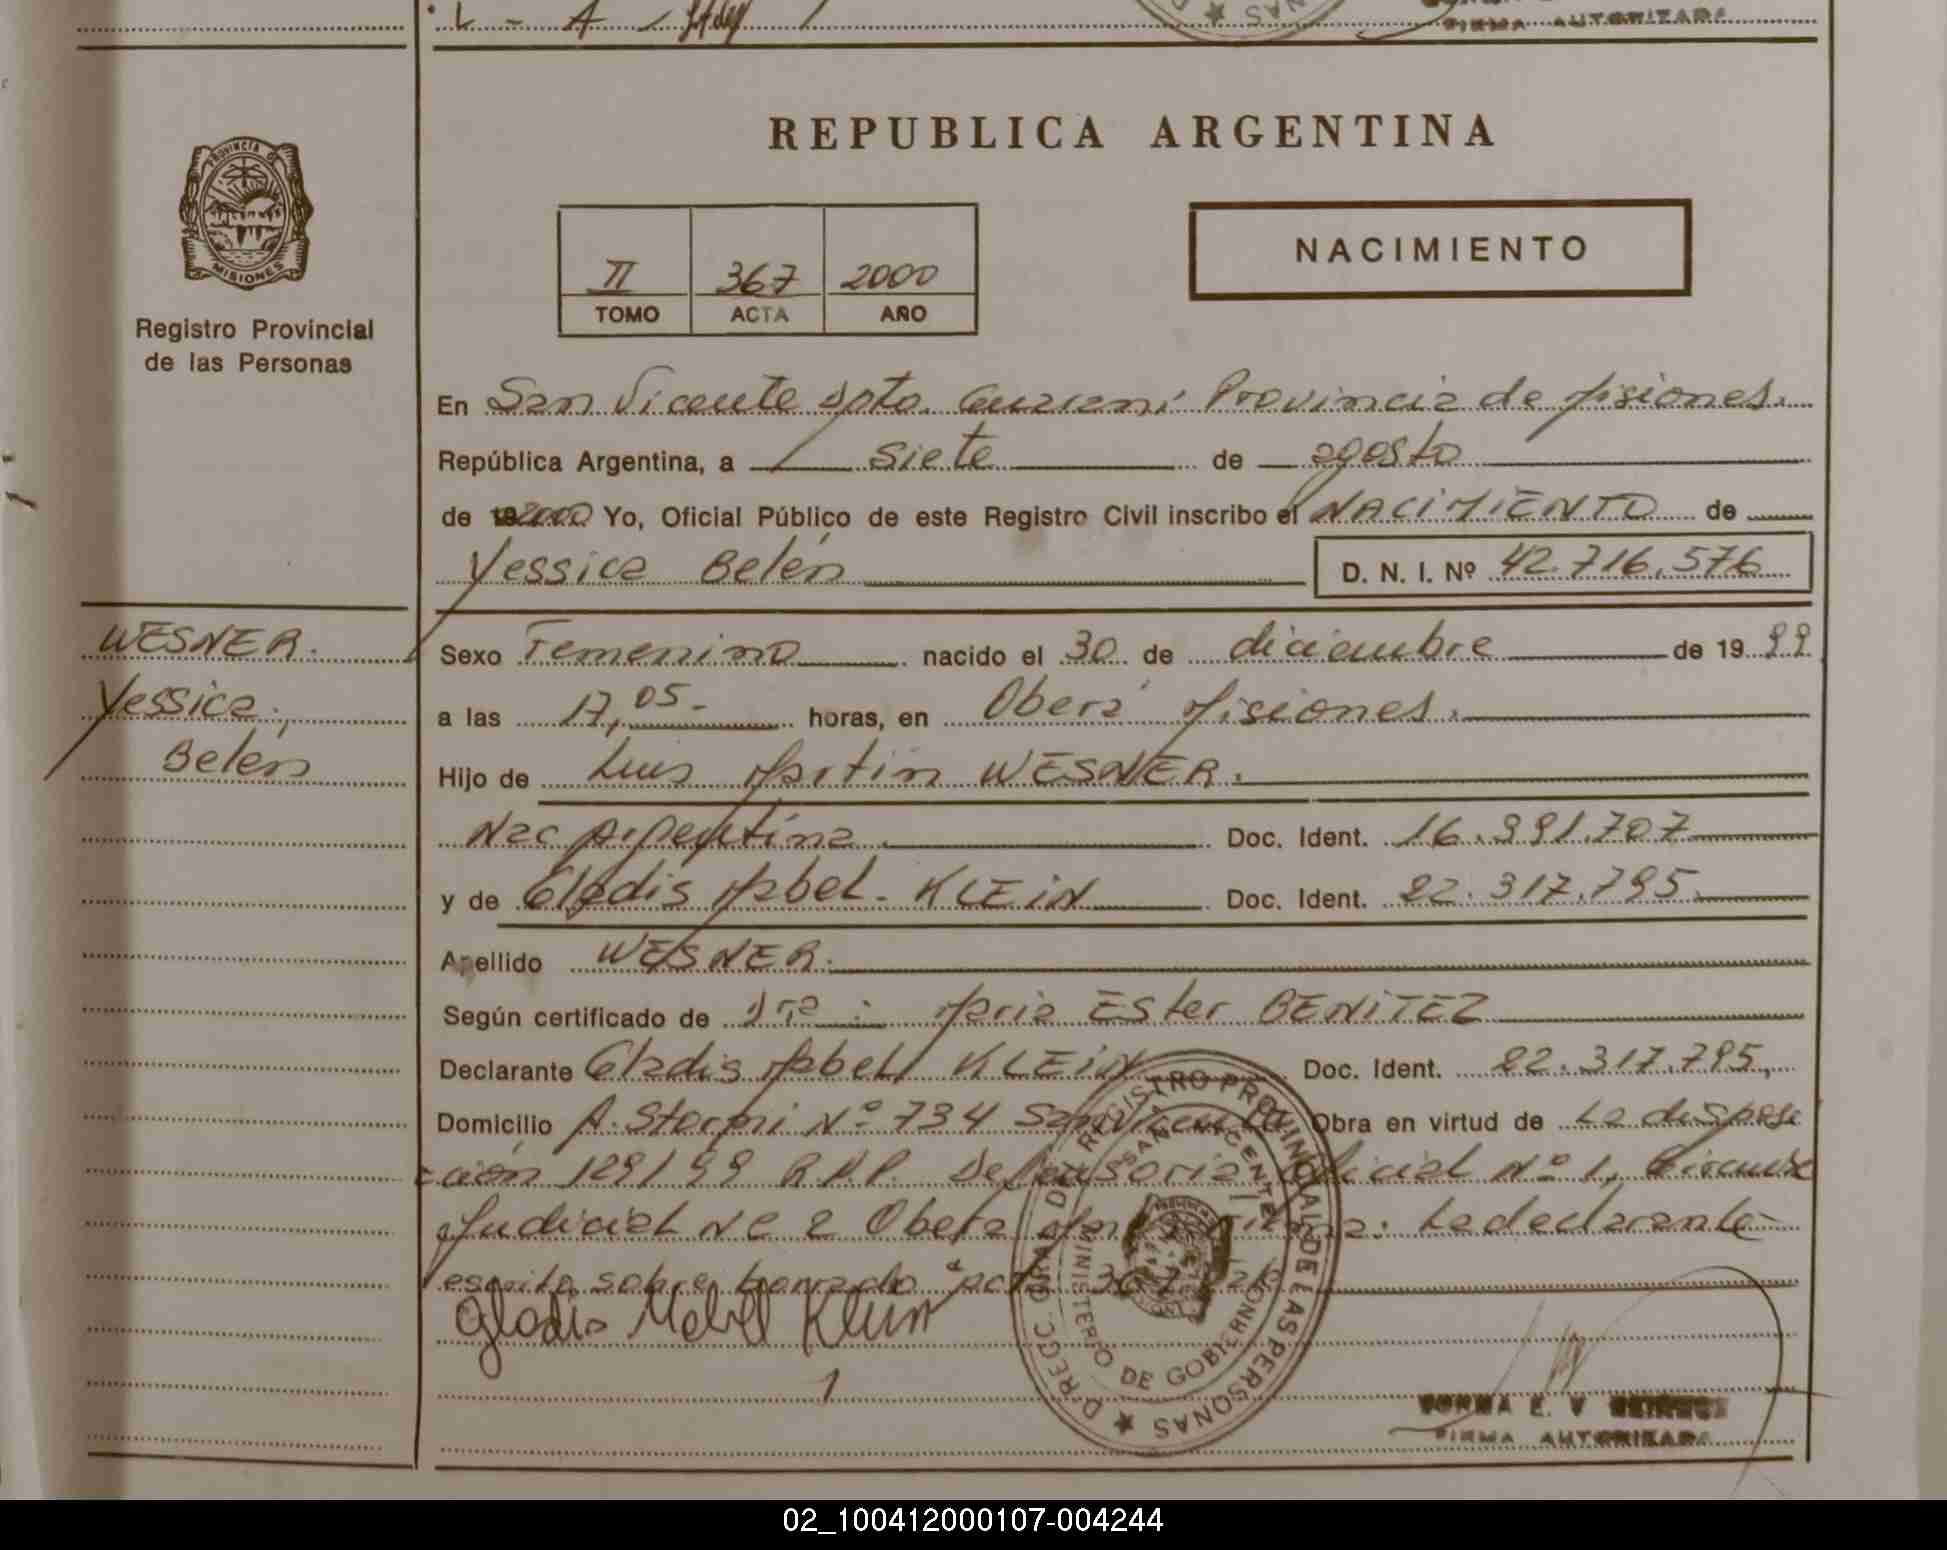 FIRMA AUTORIZADA
REPUBLICA ARGENTINA
PROVINCIA DE
MISIONES
Registro Provincial
de las Personas
II 367 2000
TOMO ACTA AÑO
NACIMIENTO
En San Vicente Dpto. Guaraní Provincia de Misiones.
República Argentina, a siete de agosto
de 2000 Yo, Oficial Público de este Registro Civil inscribo el NACIMIENTO de
Yessica Belén D. N. I. Nº 42.716.576
WESNER.
Yessica
Belén
Sexo Femenino nacido el 30 de diciembre de 1999
a las 17,05- horas, en Oberá Misiones.
Hijo de Luis Martin WESNER.
Nac Argentina Doc. Ident. 16.991.707
y de Gladis Mabel. KLEIN Doc. Ident. 22.317.795.
Apellido WESNER.
Según certificado de Dra: Maria Ester BENITEZ
Declarante Gladis Mabel KLEIN Doc. Ident. 22.317.795,
Domicilio A. Storni Nº 734 San Vicente Obra en virtud de La disposi
ción 129/99 R.P.P. Defensoria Oficial Nº 1, Circuns
Judicial Nº 2 Oberá Ladeclarante
escrito sobre borrado "acta 367
Gladis Mabel Klein
D. REGC. GRAL. DEL REGISTRO PROVINCIAL DE LAS PERSONAS
SAN VICENTE
MINISTERIO DE GOBIERNO
NORMA E. V
FIRMA AUTORIZADA
02_100412000107-004244